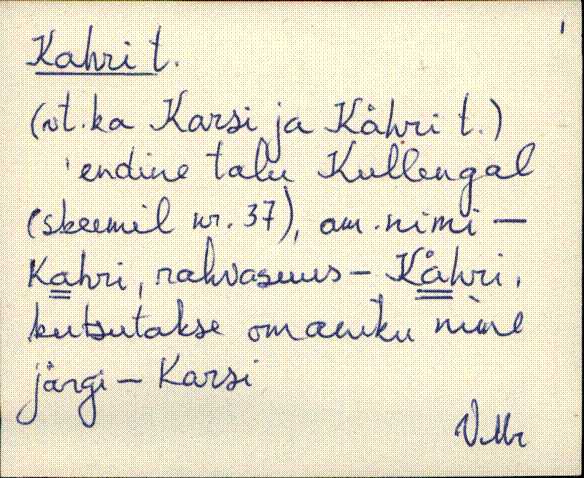 Kahri t.
(vt. ka Karsi ja Kåhri t.)
endine talu Kullengal
(skeemil nr. 37), am. nimi –
Kahri, rahvasuus – Kåhri,
kutsutakse omaniku nime
järgi – Karsi
VMr